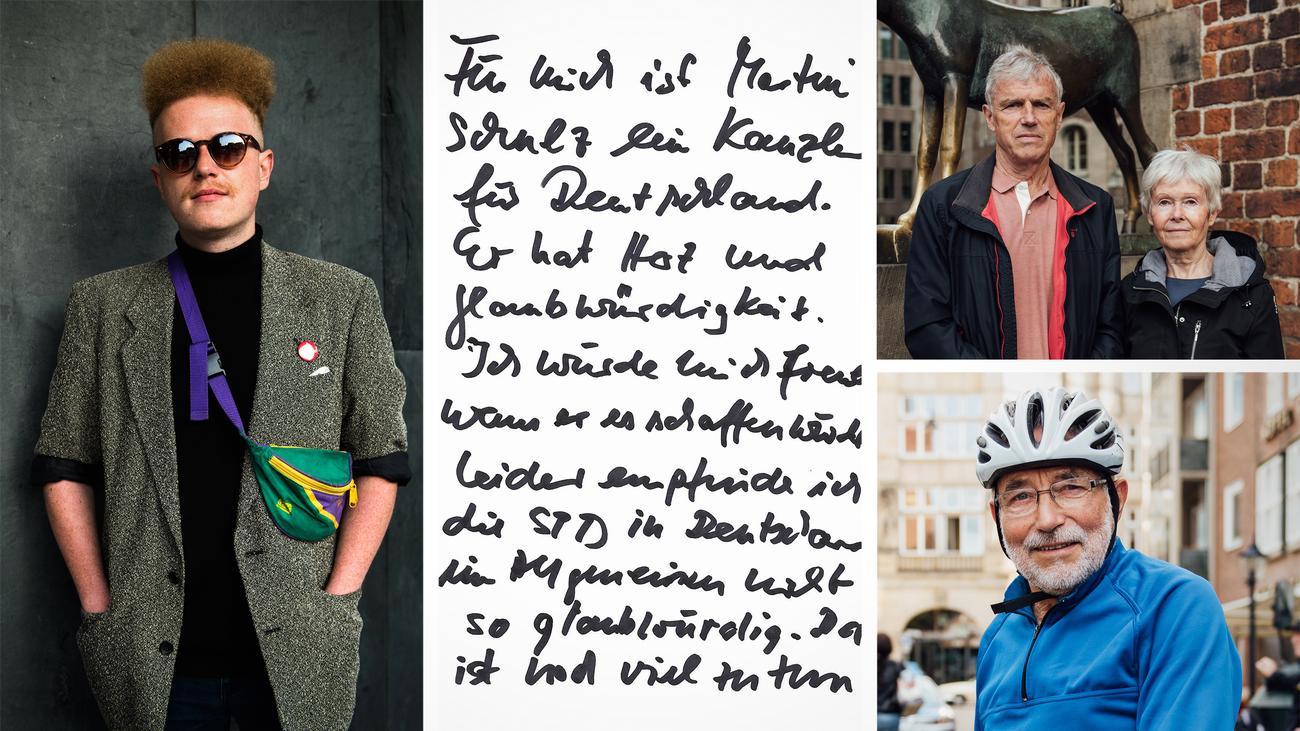 Für mich ist Martin
Schulz ein Kanzler
für Deutschland.
Er hat Herz und
Glaubwürdigkeit.
Ich würde mich freue
wenn er es schaffen würde
leider empfinde ich
die SPD in Deutschlan
im Allgemeinen nicht
so glaubwürdig. Da
ist noch viel zu tun